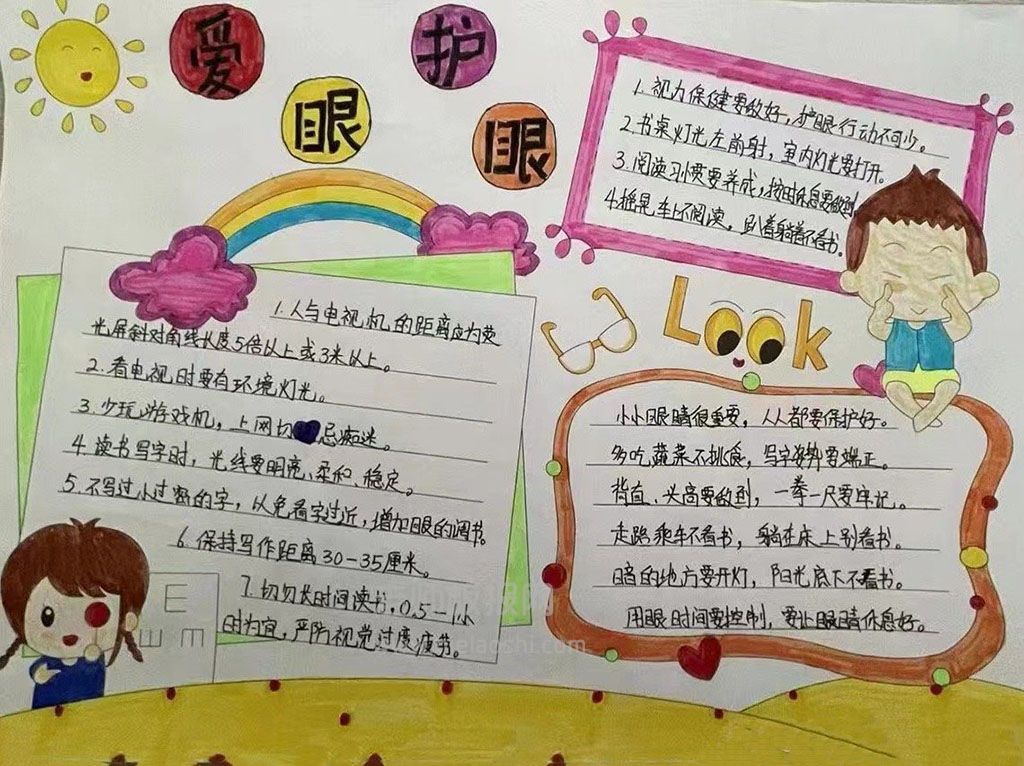 爱护眼眼
1.视力保健要做好,护眼行动不可少。
2.书桌灯光左前射,室内灯光要打开。
3.阅读习惯要养成,按时休息要做到
4.摇晃车上不阅读,趴着躺着不看书。
Look
1.人与电视机的距离应为荧
光屏斜对角线长度5倍以上或3米以上。
2.看电视时要有环境灯光。
3.少玩游戏机,上网切忌痴迷。
4.读书写字时,光线要明亮、柔和、稳定。
5.不写过小过密的字,以免看字过近,增加眼的调节。
6.保持写作距离30-35厘米。
7.切勿长时间读书,0.5-1小
时为宜,严防视觉过度疲劳。
小小眼睛很重要,人人都要保护好。
多吃蔬菜不挑食,写字姿势要端正。
背直、头高要做到,一拳一尺要牢记。
走路乘车不看书,躺在床上别看书。
暗的地方要开灯,阳光底下不看书。
用眼时间要控制,要让眼睛休息好。
E
m